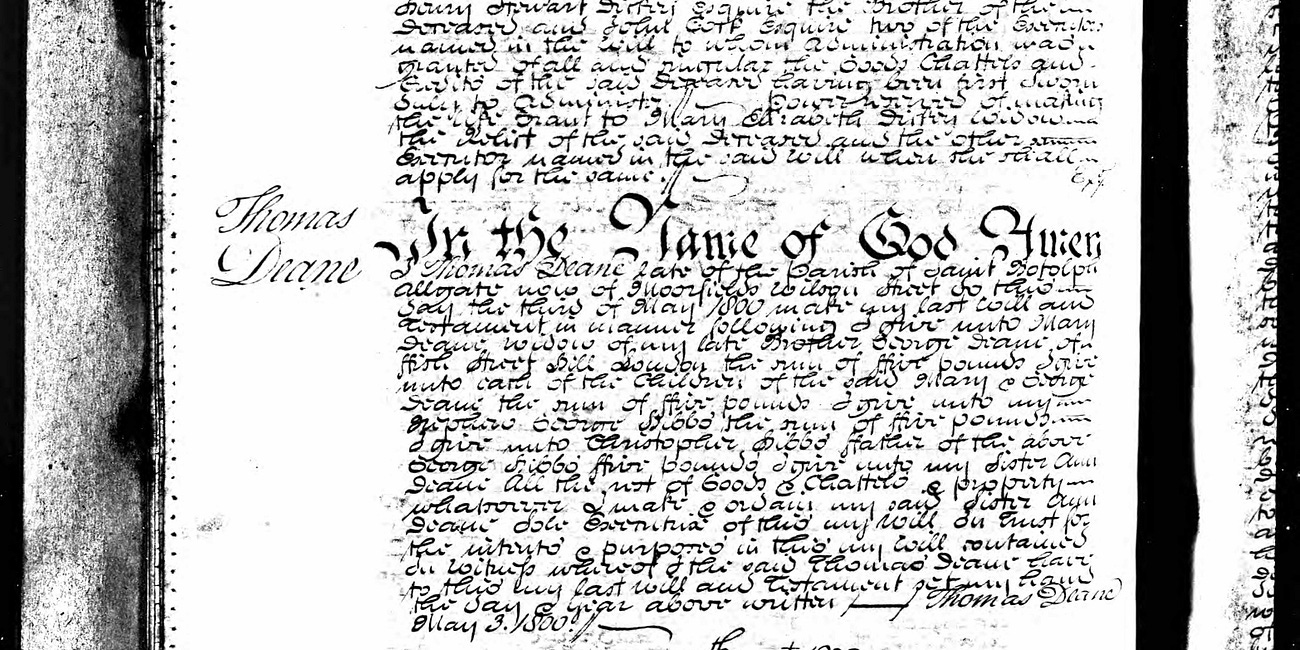 Henry Stewart Esquire the Brother of the
Deceased and John Esquire two of the Executors
named in the Will to whom Administration was
granted of all and singular the Goods Chattels and
Credits of the said Deceased having been first sworn
duly to Administer Power reserved of making
the like Grant to Mary Elizabeth Widow
the Relict of the said Deceased and the other
Executor named in the said Will when she shall
apply for the same
Thomas
Deane
In the Name of God Amen
I Thomas Deane late of the Parish of Saint Botolph
Alldgate now of Moorfields Wilson Street do this
day the third of May 1800 make my last Will and
Testament in manner following I give unto Mary
Deane Widow of my late Brother George Deane of
ffish Street Hill London the sum of ffive pounds I give
unto each of the Children of the said Mary & George
Deane the sum of ffive pounds I give unto my
Nephew George Gibbs the sum of ffive pounds
I give unto Christopher Gibbs ffather of the above
George Gibbs ffive pounds I give unto my Sister Ann
Deane All the rest of Goods & Chattels & property
whatsoever I make & ordain my said Sister Ann
Deane Sole Executrix of this my Will In trust for
the intents & purposes in this my Will contained
In Witness whereof I the said Thomas Deane have
to this my last Will and Testament set my hand
the day & year above written Thomas Deane
May 3. 1800